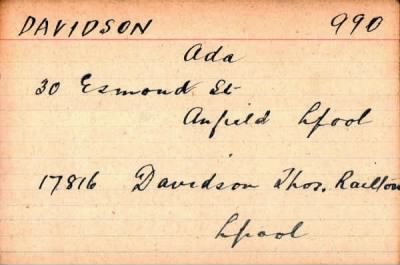 DAVIDSON 990
Ada
30 Esmond St
Anfield Lpool
17816 Davidson Thos. Railton
Lpool